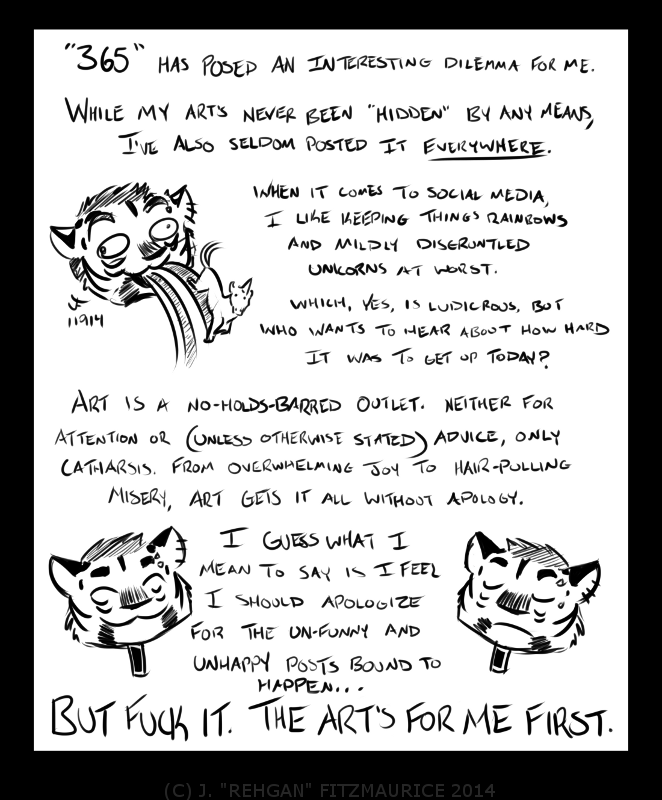 "365" HAS POSED AN INTERESTING DILEMMA FOR ME.
WHILE MY ART'S NEVER BEEN "HIDDEN" BY ANY MEANS,
I'VE ALSO SELDOM POSTED IT EVERYWHERE.
WHEN IT COMES TO SOCIAL MEDIA,
I LIKE KEEPING THINGS RAINBOWS
AND MILDLY DISGRUNTLED
UNICORNS AT WORST.
WHICH, YES, IS LUDICROUS, BUT
WHO WANTS TO HEAR ABOUT HOW HARD
IT WAS TO GET UP TODAY?
JF
11914
ART IS A NO-HOLDS-BARRED OUTLET. NEITHER FOR
ATTENTION OR (UNLESS OTHERWISE STATED) ADVICE, ONLY
CATHARSIS. FROM OVERWHELMING JOY TO HAIR-PULLING
MISERY, ART GETS IT ALL WITHOUT APOLOGY.
I GUESS WHAT I
MEAN TO SAY IS I FEEL
I SHOULD APOLOGIZE
FOR THE UN-FUNNY AND
UNHAPPY POSTS BOUND TO
HAPPEN...
BUT FUCK IT. THE ART'S FOR ME FIRST.
(C) J. "REHGAN" FITZMAURICE 2014